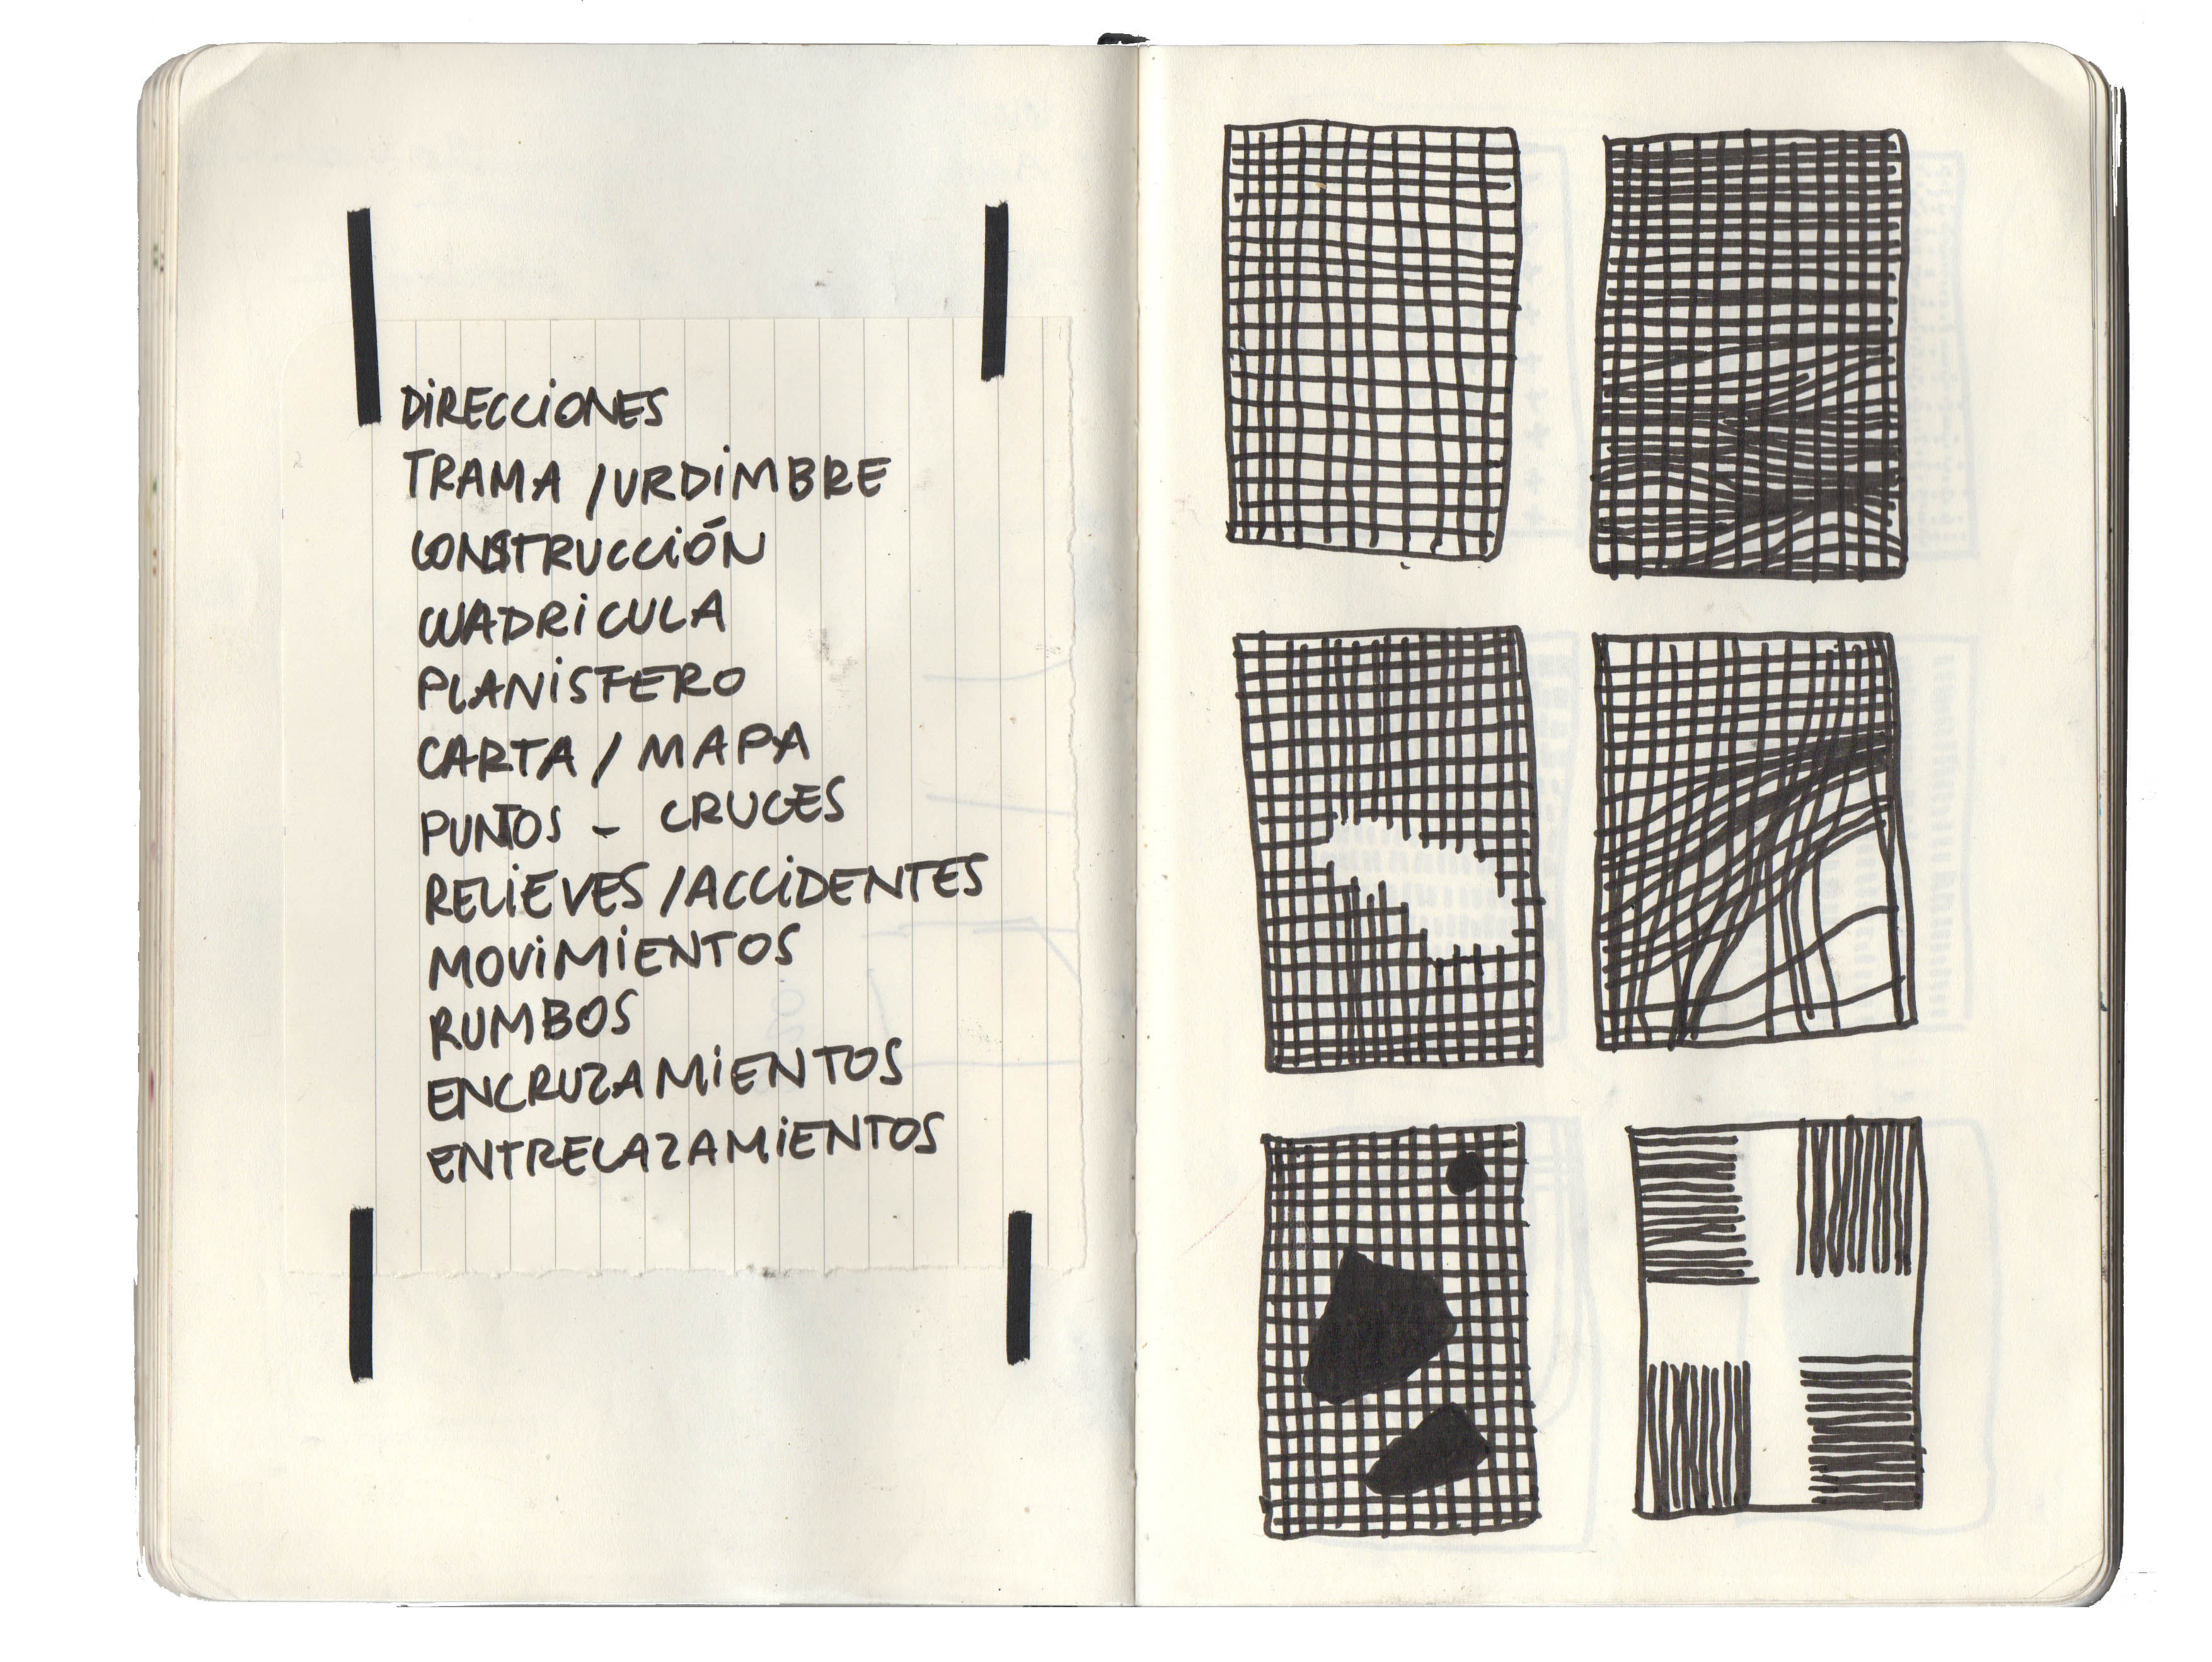 DIRECCIONES
TRAMA / URDIMBRE
CONSTRUCCIÓN
CUADRICULA
PLANISFERO
CARTA / MAPA
PUNTOS - CRUCES
RELIEVES / ACCIDENTES
MOVIMIENTOS
RUMBOS
ENCRUZAMIENTOS
ENTRELAZAMIENTOS